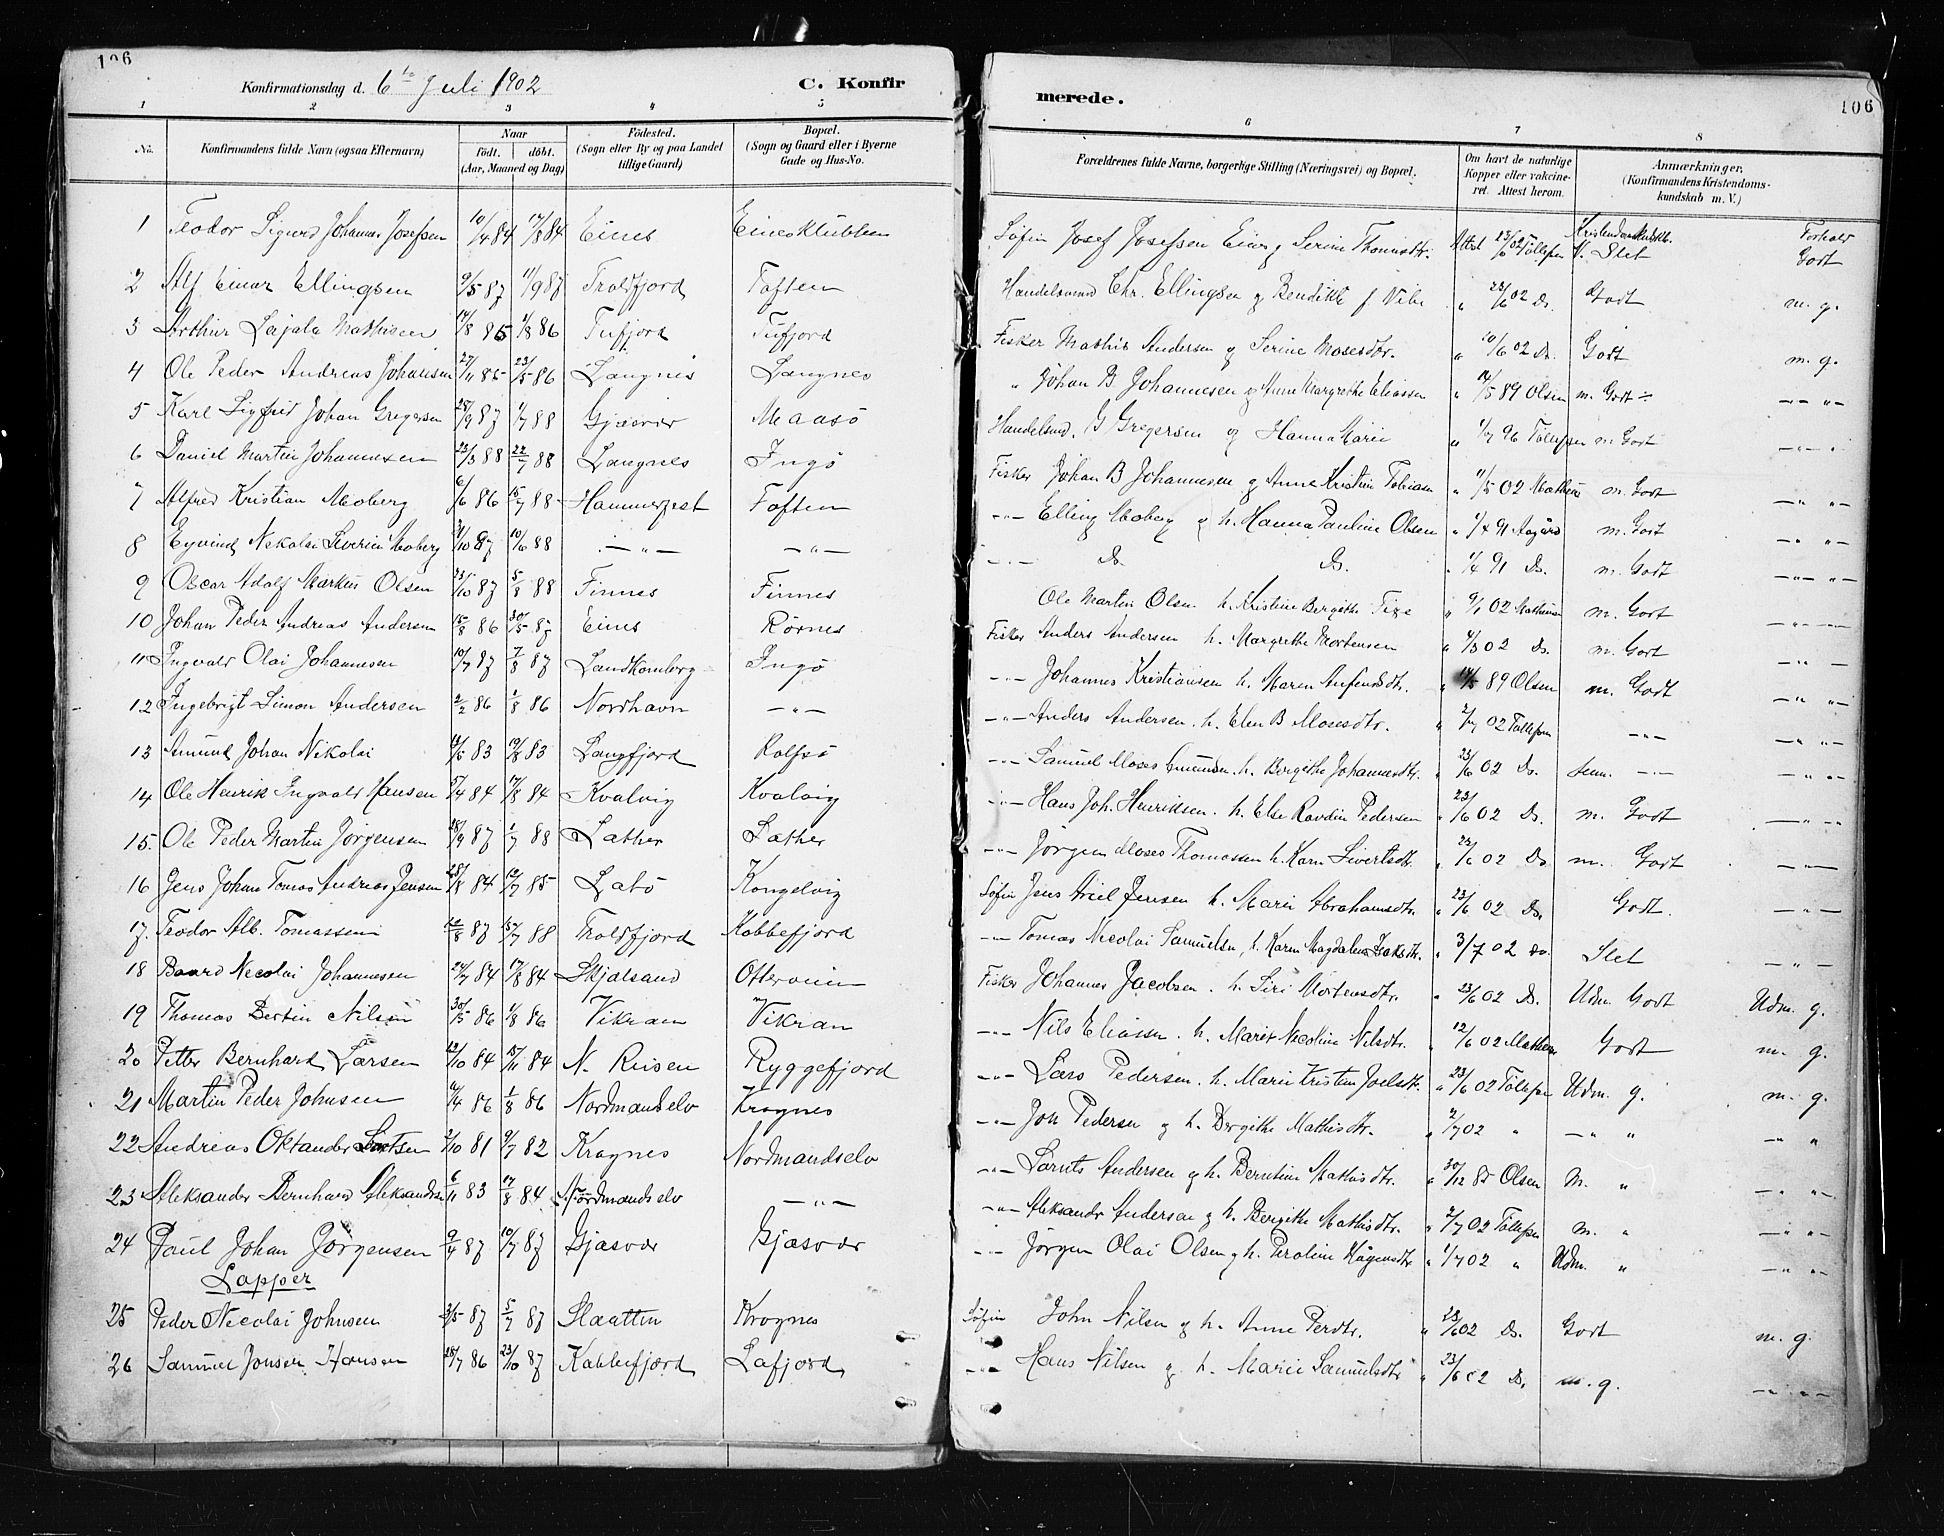 106
Konfirmationsdag d. 6te Juli 1902
C. Konfir
merede.
106
1 2 3 4 5 6 7 8
No.
Konfirmandens fulde Navn (ogsaa Efternavn)
Naar
födt. döbt.
(Aar, Maaned og Dag)
Födested.
(Sogn eller By og paa Landet
tillige Gaard)
Bopæl.
(Sogn og Gaard eller i Byerne
Gade og Hus-No.
Forældrenes fulde Navne, borgerlige Stilling (Næringsvei) og Bopæl.
Om havt de naturlige
Kopper eller vakcine-
ret. Attest herom.
Anmærkninger.
(Konfirmandens Kristendoms-
kundskab m. V.)
Forhold
1 Teodor Sigurd Johannes Josefsen 10/4 84 17/8 84 Eines Einesklubben Søfin Josef Josefsen Eines og Serine Thomasdtr. Attest 23/6 02 Tollefsen N. Slet Godt
2 Alf Einar Ellingsen 9/5 87 11/9 87 Troldfjord Toften Handelsmand Chr. Ellingsen og Bendikte f " 23/6 02 Do. Godt m. g.
3 Arthur Lajala Mathisen 17/8 85 1/8 86 Tufjord Tufjord Fisker Mathis Andersen og Serine Mosesdtr. " 10/6 02 Do. Godt m. g.
4 Ole Peder Andreas Johansen 27/11 85 23/5 86 Langnes Langnes " Johan B Johannesen og Anne Margrethe Eliassen " 14/5 89 Olsen m. Godt ÷ —"— "—
5 Karl Sigfrid Johan Gregersen 28/9 87 1/7 88 Gjæsvær Maasö Handelsmd. G Gregersen og Hanna Marie " 1/7 96 Tollefsen m Godt —"— "
6 Daniel Martin Johannesen 23/3 88 22/7 88 Langnes Ingö Fisker Johan B Johannesen og Anne Kristine Tobiasen " 11/5 02 Mathisen m. Godt —"— "—
7 Alfred Kristian Moberg 6/6 86 15/7 88 Hammerfest Toften —"— Elling Moberg og h. Hanna Pauline Olsen " 1/4 91 Aagård m. Godt —"— "—
8 Eyvind Nikolai Severin Moberg 31/10 87 10/6 88 —"— —"— —"— Do. Do. " 1/4 91 Do. m. Godt —"— "—
9 Oscar Adolf Markus Olsen 23/10 87 5/8 88 Finnes Finnes Ole Martin Olsen h. Kristine Bergithe " 9/1 02 Mathisen m. Godt —"— "—
10 Johan Peder Andreas Andersen 15/8 86 30/5 87 Eines Rörnes Fisker Anders Andersen h. Margrethe Mortensen " 4/3 02 Do. m. Godt —"—
11 Ingvald Olai Johannesen 10/7 87 7/8 87 Ingö —"— Johannes Kristiansen h. Maren " 14/5 89 Olsen m. Godt —"— "—
12 Ingebrigt Simon Andersen 2/2 86 1/8 86 Nordhavn —"— —"— Anders Andersen h. Elen B Mosesdtr. " 2/7 02 Tollefsen —"— —"— "—
13 Amund Johan Nikolai 83 83 Langfjord Rolfsö —"— Samuel Moses h. Bergithe Johannesdtr. " 23/6 02 Do. —"— —"— "—
14 Ole Henrik Ingvald Hansen 5/4 84 17/8 84 Kvalvig Kvalvig —"— Hans Joh. Henriksen h. Else Ravdin Pedersen " 23/6 02 Do. m. Godt —"— "—
15. Ole Peder Martin Jörgensen 28/9 87 1/7 88 Lather Lather —"— Jörgen Moses Thomassen h. Karn Sivertsdtr. " 23/6 02 Do m. Godt —"—
16 Jens Johan Tomas Andreas Jensen 28/8 84 12/7 85 Latö Kongelvig Søfin Jens Ariel Jensen h. Marie Abrahamsdtr. " 23/6 02 Do. Godt. —"—
17. Teodor Alb. Tomassen 12/8 87 15/7 88 Troldfjord Kobbefjord —"— Tomas Nicolai Samuelsen, h. Karen Magdalena Isaksdtr. " 3/7 02 Do. Slet —"—
18 Baard Necolai Johannesen 24/7 84 17/8 84 Skjælsand Fisker Johannes Jacobsen h. Siri Mortensdtr. " 23/6 02 Do. Udm. Godt Udm. g.
19 Thomas Bertin Nilsen 30/5 86 1/8 86 Vikran Vikran —"— Nils Eliassen h. Marit Necoline Nilsdtr. " 12/6 02 Mathisen Godt m. g.
20 Petter Bernhard Larsen 23/10 84 15/11 84 N. Reisen Ryggefjord —"— Lars Pedersen h. Marie Kristine Joelsdtr. " 23/6 02 Tollefsen Udm. g. m. g.
21 Martin Peder Johnsen 12/4 86 1/8 86 Nordmandselv Krognes —"— Jon Pedersen og h. Bergithe Mathisdtr. " 2/7 02 " —"— " " "
22 Andreas Oktander Lortsen 2/10 81 9/7 82 Krognes Nordmandselv —"— Lornts Andersen og h. Berntine Mathisdtr. " 30/12 85 Olsen M. " —"— "—
23 Aleksander Bernhard Aleksandersen 6/11 83 17/8 84 Nordmandselv —"— —"— Aleksander Andersen og h. Bergithe Mathisdtr. " 2/7 02 Tollefsen m. " —"— "—
24 Paul Johan Jörgensen 9/4 87 10/7 87 Gjæsvær Gjæsvær —"— Jörgen Olai Olsen og h. Peroline Hågensdtr. " 1/7 02 " Udm. " —"— "—
Lapper
25 Peder Nicolai Johnsen 3/5 87 5/7 87 Slaatten Krognes Søfin John Nilsen og h. Anne Perdtr. " 23/6 02 Do. Godt m. g.
26 Samuel Jonsen Hansen 28/7 86 23/10 87 Kobbefjord Lafjord —"— Hans Nilsen og h. Marie Samuelsdtr. " 23/6 02 Do. m. g. —"— "—